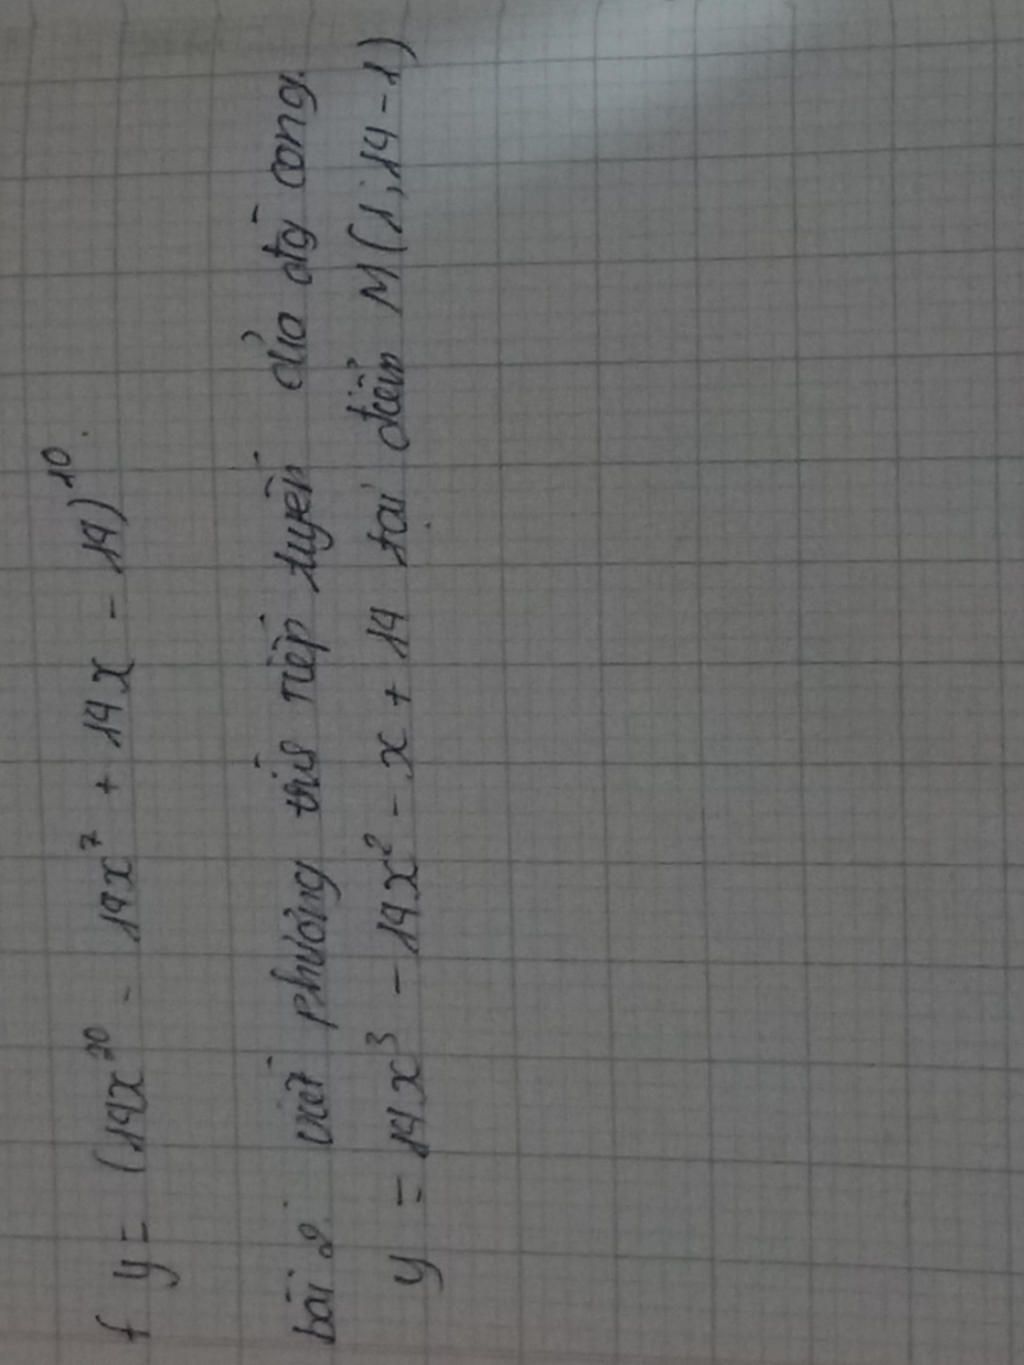 f y = (14x²⁰ - 14x⁷ + 14x - 14)¹⁰.
bài 2. viết phương trìs tiếp tuyến của đg cong.
y = 14x³ - 14x² - x + 14 tại điểm M(1; 14 - 1)